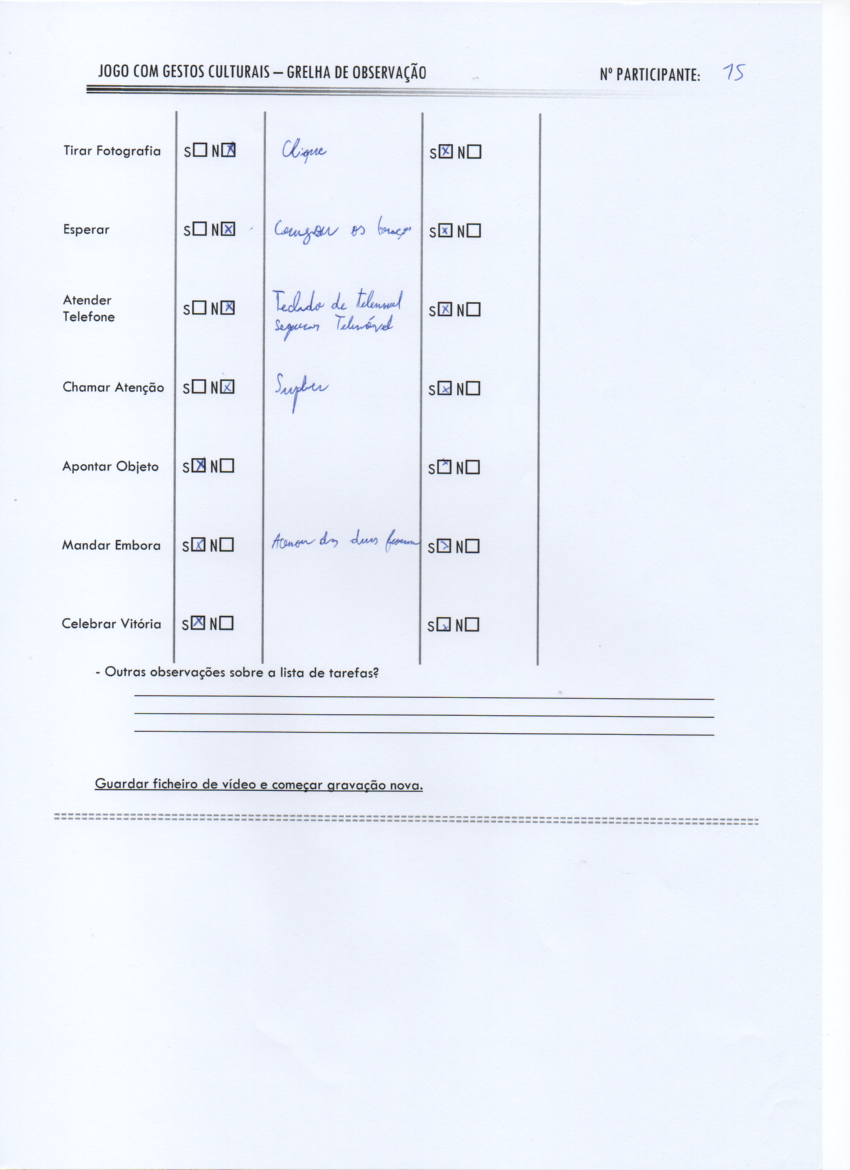 JOGO COM GESTOS CULTURAIS – GRELHA DE OBSERVAÇÃO Nº PARTICIPANTE: 15
Tirar Fotografia S☐ N☒ Clique S☒ N☐
Esperar S☐ N☒ os braços S☒ N☐
Atender
Telefone S☐ N☒ Teclado de S☒ N☐
Telemóvel
Chamar Atenção S☐ N☒ S☒ N☐
Apontar Objeto S☒ N☐ S☒ N☐
Mandar Embora S☒ N☐ Acenou duas S☒ N☐
Celebrar Vitória S☒ N☐ S☒ N☐
- Outras observações sobre a lista de tarefas?
Guardar ficheiro de vídeo e começar gravação nova.